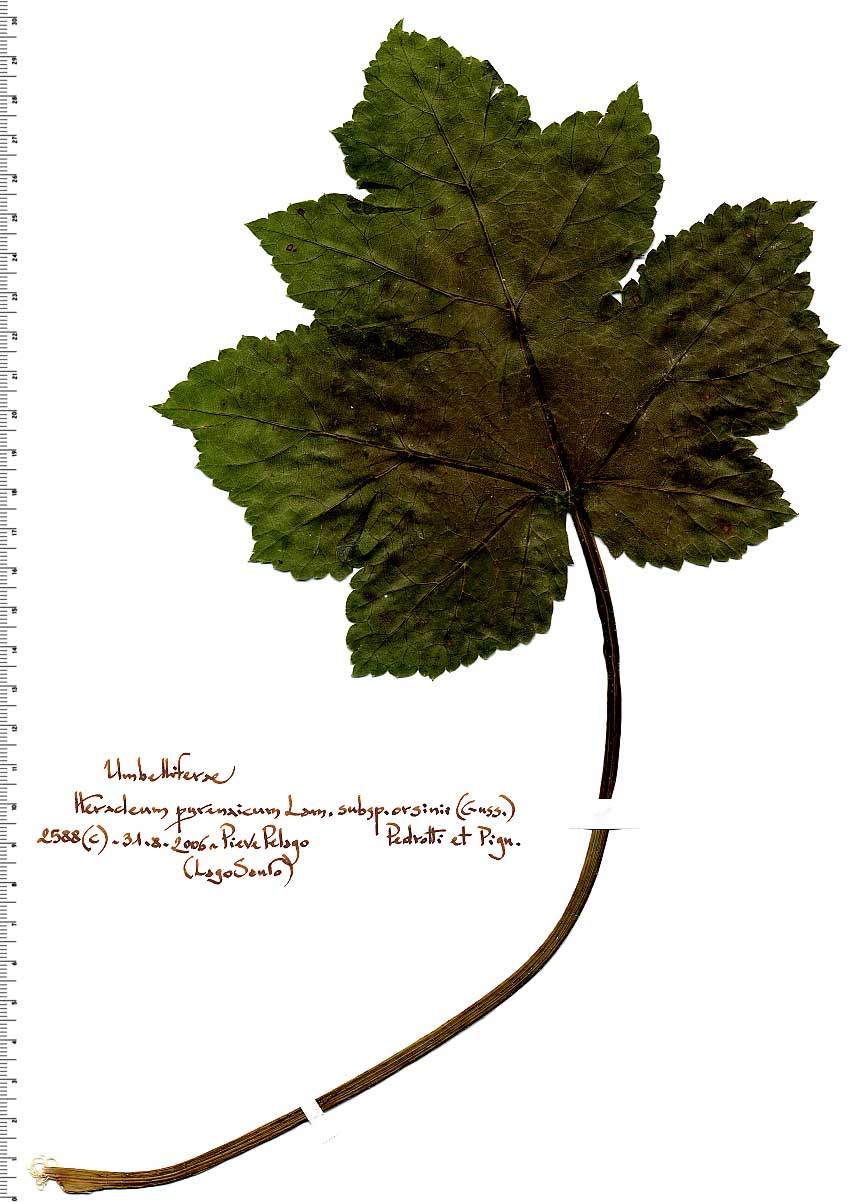 Umbelliferae
Heracleum pyrenaicum Lam. subsp. orsinii (Guss.)
2588(c) - 31.8.2006 - Pieve Pelago Pedrotti et Pign.
(Lago Santo)